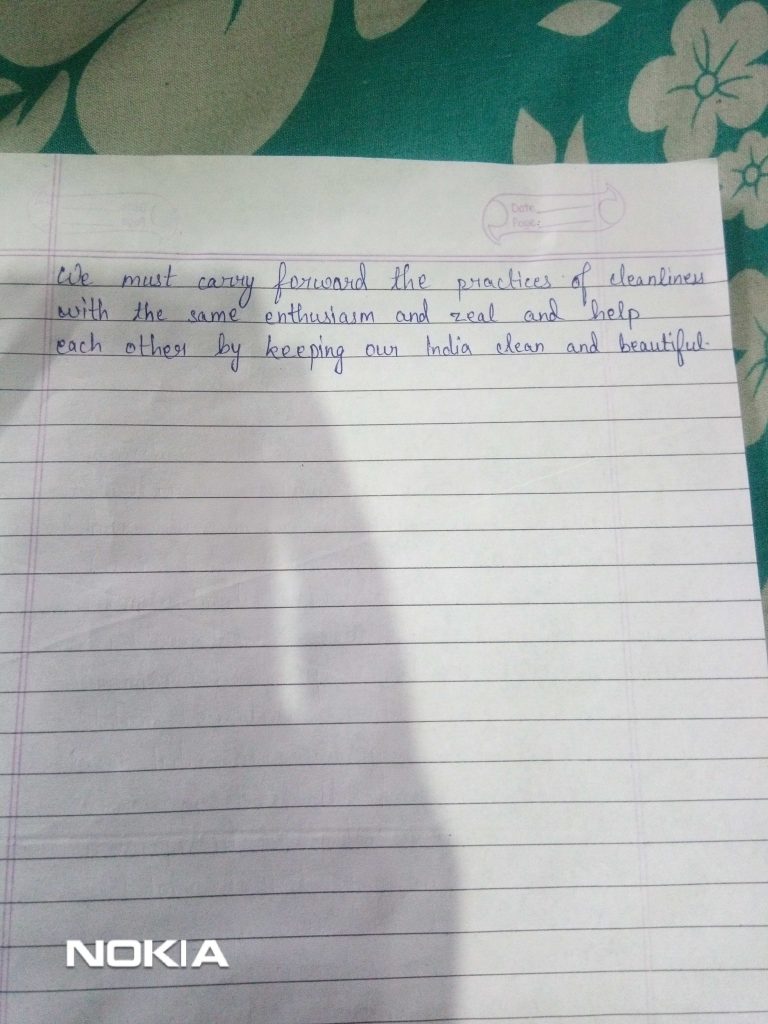 Date
Page:
We must carry forward the practices of cleanliness
with the same enthusiasm and zeal and help
each other by keeping our India clean and beautiful.
NOKIA